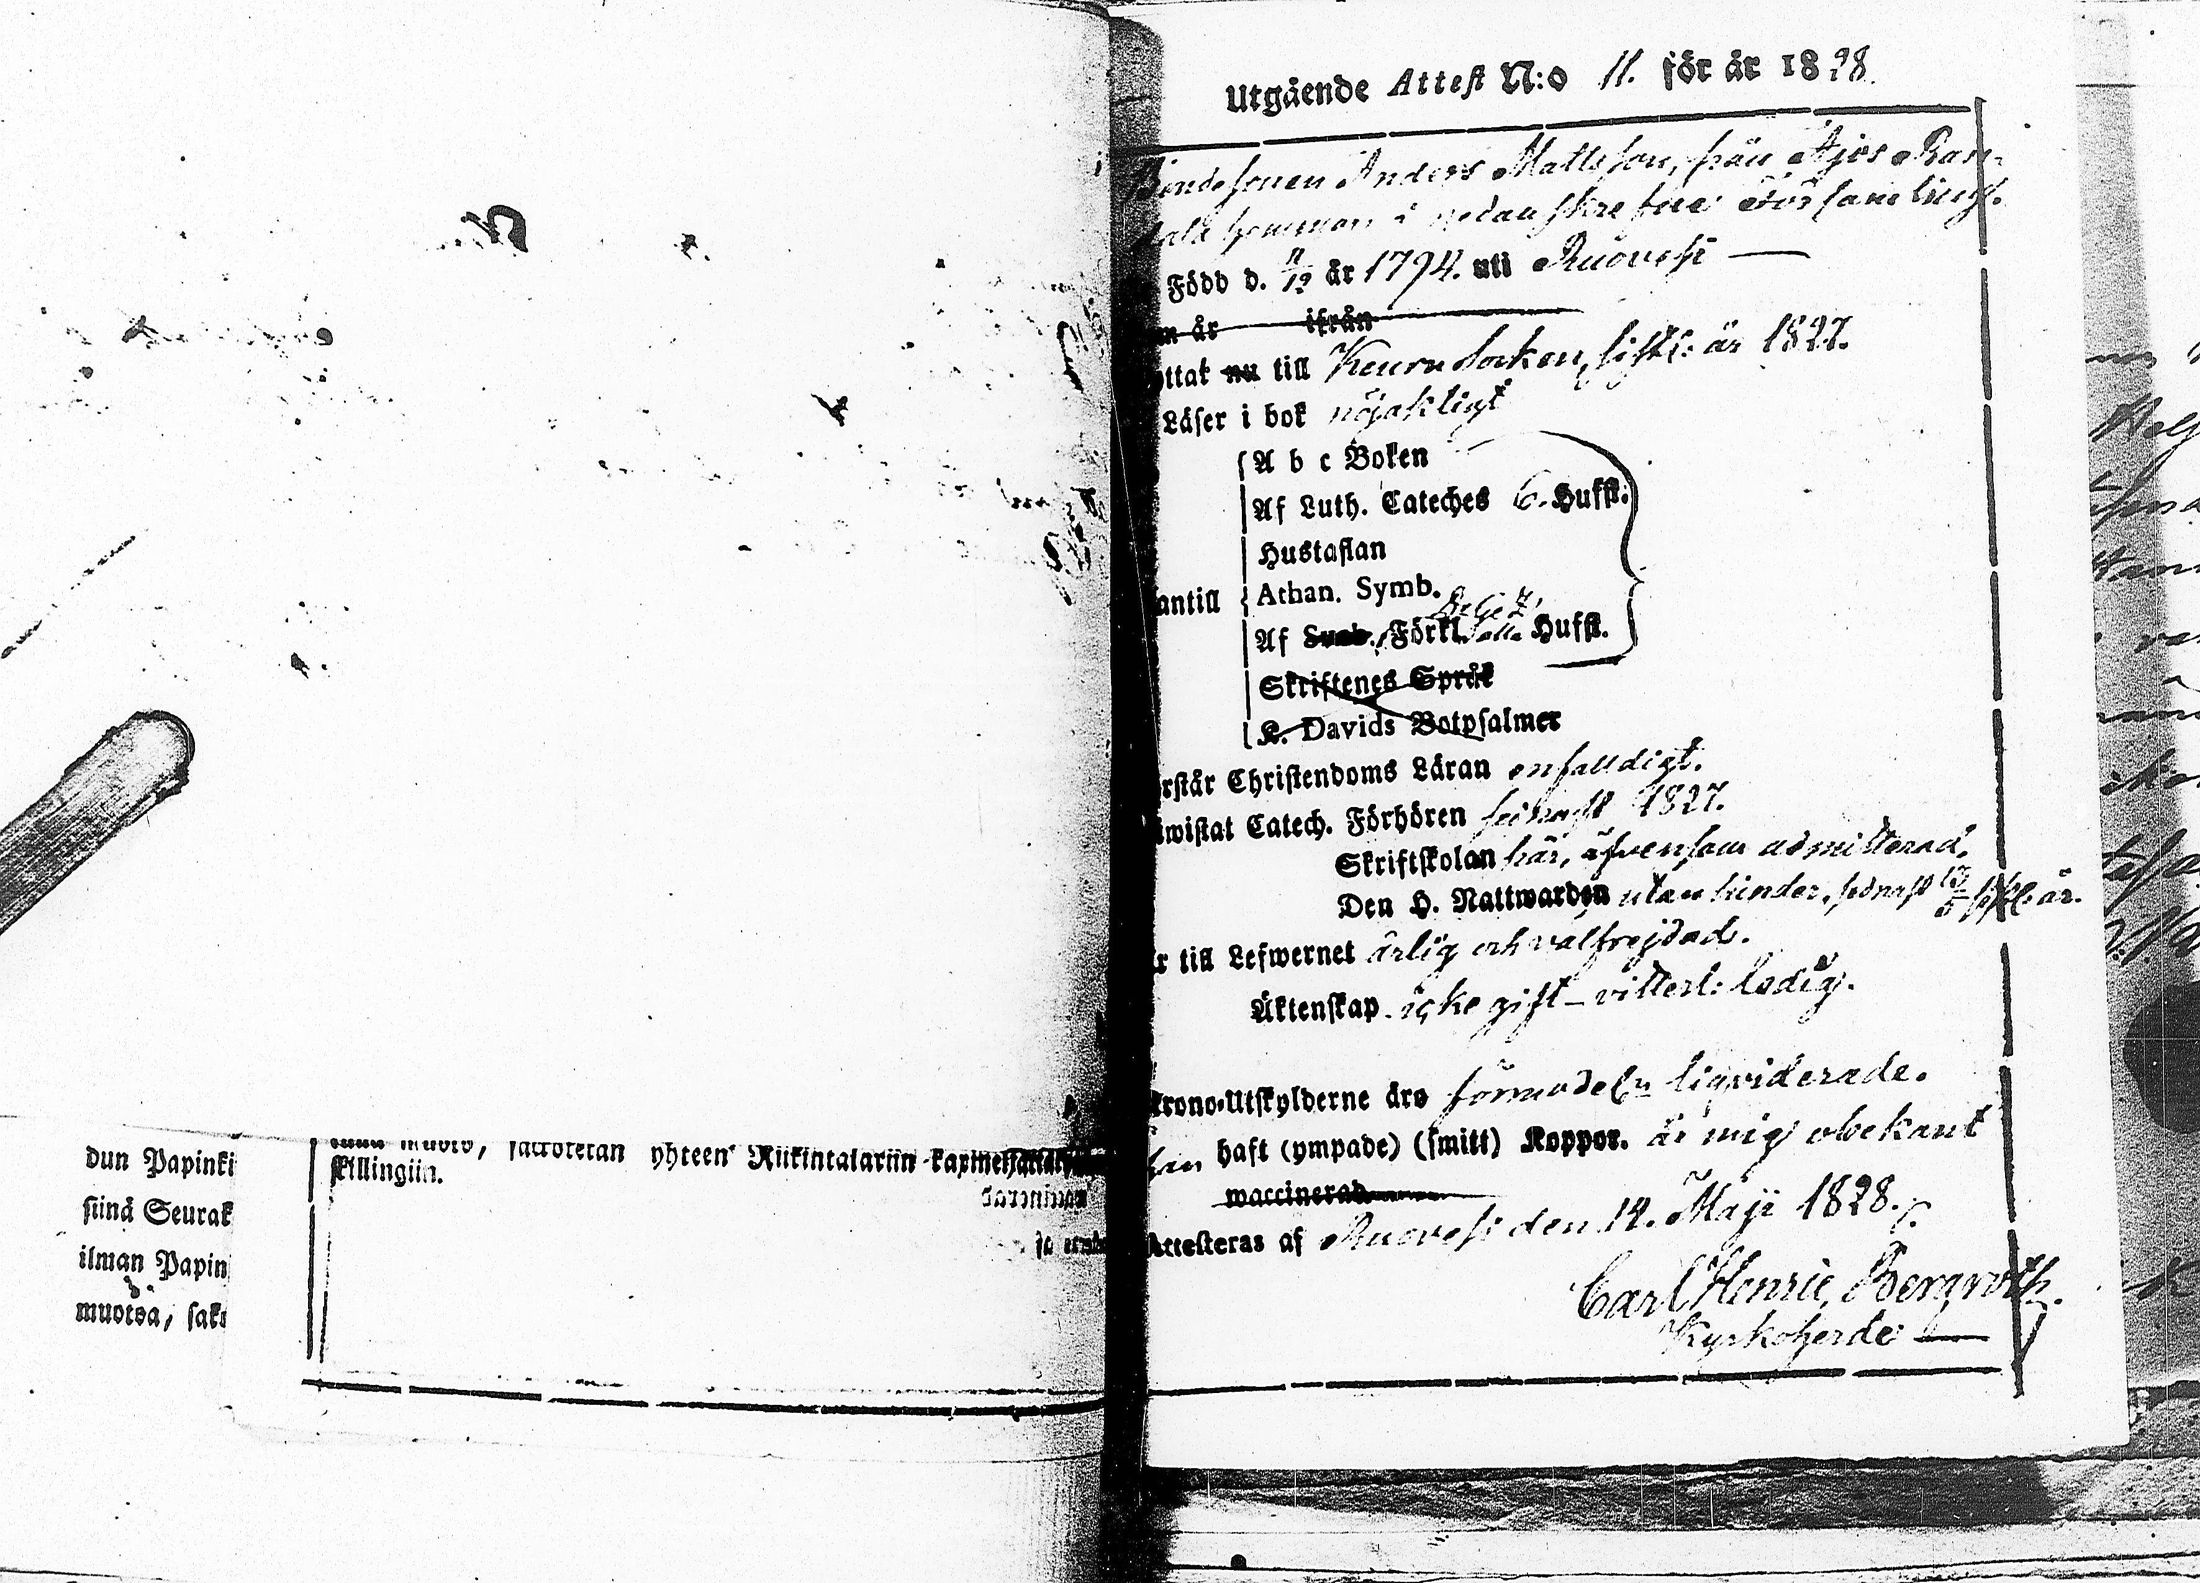 Utgående Attest N:o 11. för år 1828.
Bondesonen Anders Mattsson, från Ajos Ran-
hemman i nedanskrefne Församling.
Född d. 11/12 år 1794. uti Ruovesi —
år ifrån
ttat nu till Keuru Socken, sistl: år 1827.
Läser i bok nöjaktigt
A b c Boken
Af Luth. Cateches 6. Hufst.
Hustaflan
antill Athan. Symb.
Af Sveb. Förkl. Hufst.
Skriftenes Språk
K. Davids Botpsalmer
rstår Christendoms Läran enfalldigt.
wistat Catech. Förhören sednast 1827.
Skriftskolan här, äfvensom admitterad.
Den H. Nattwarden utan hinder, sednast sistl. år.
r till Lefwernet ärlig och välfrejdad.
Äktenskap icke gift – vitterl: ledig.
Krono-Utskylderne äro förmodeln liqviderade.
haft (ympade) (smitt) Koppor. är mig obekant
waccinerad
Attesteras af Ruovesi den 14. Maji 1828.
Carl Henric Bergroth.
Kyrkoherde —
muoto, yhteen Riikintalariin
skillingiin.
dun Papinki
siinä Seurak
ilman Papin
muotoa, saka